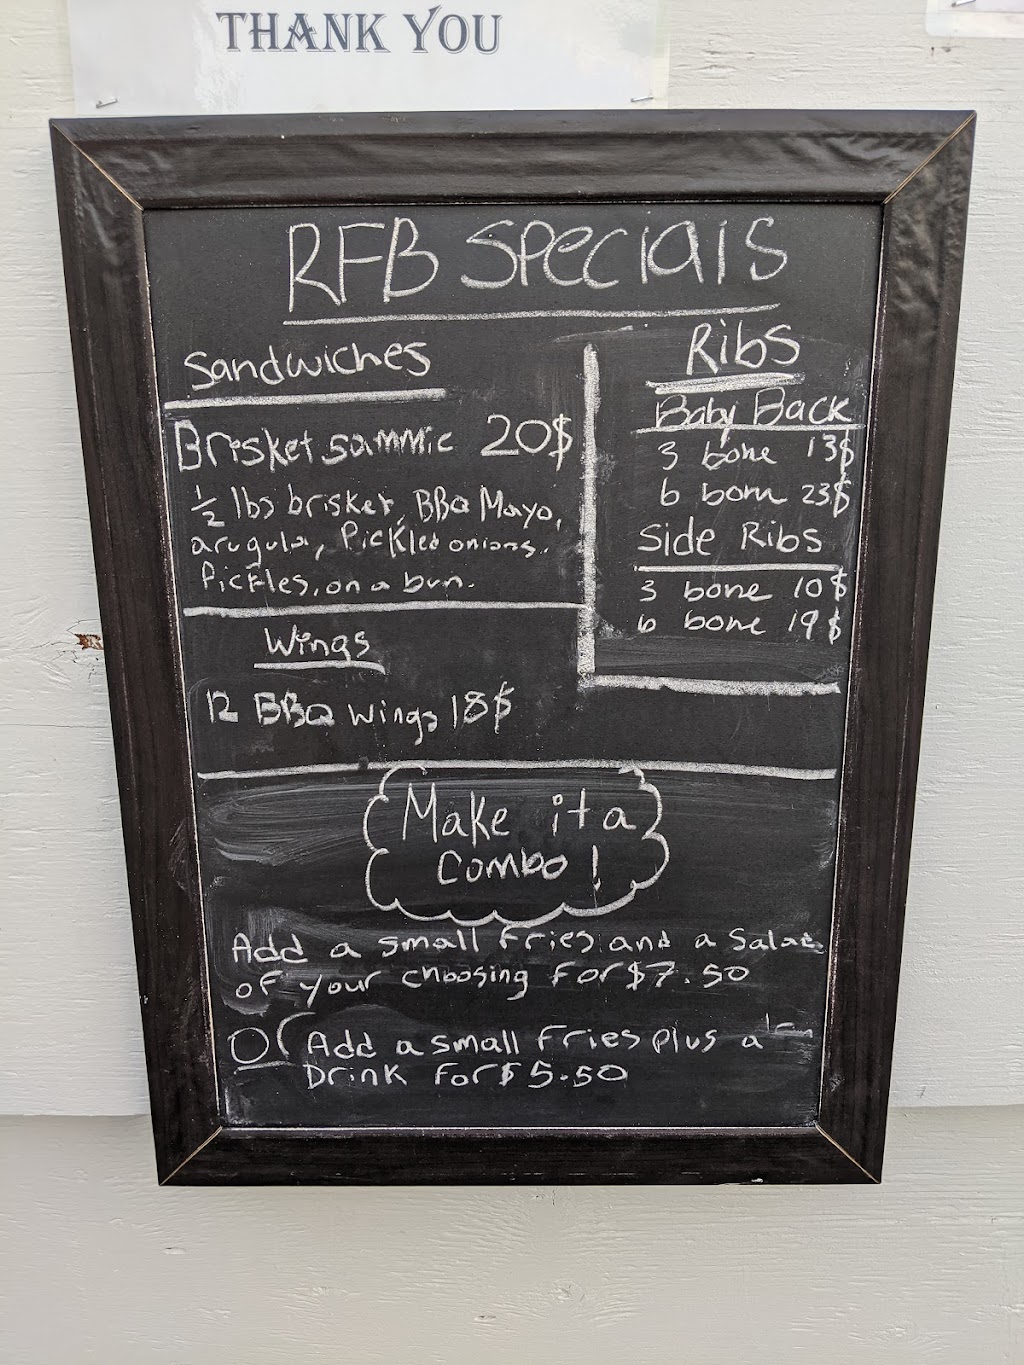 THANK YOU
RFB Specials
Sandwiches
Brisket sammie 20$
1/2 lbs brisket, BBQ Mayo,
arugula, Pickled onions.
Pickles, on a bun.
Ribs
Baby Back
3 bone 13$
6 bone 23$
Side Ribs
3 bone 10$
6 bone 19$
Wings
12 BBQ Wings 18$
Make it a
Combo!
Add a small fries and a Salad
of your choosing For $7.50
Or Add a small Fries plus a
Drink For $5.50